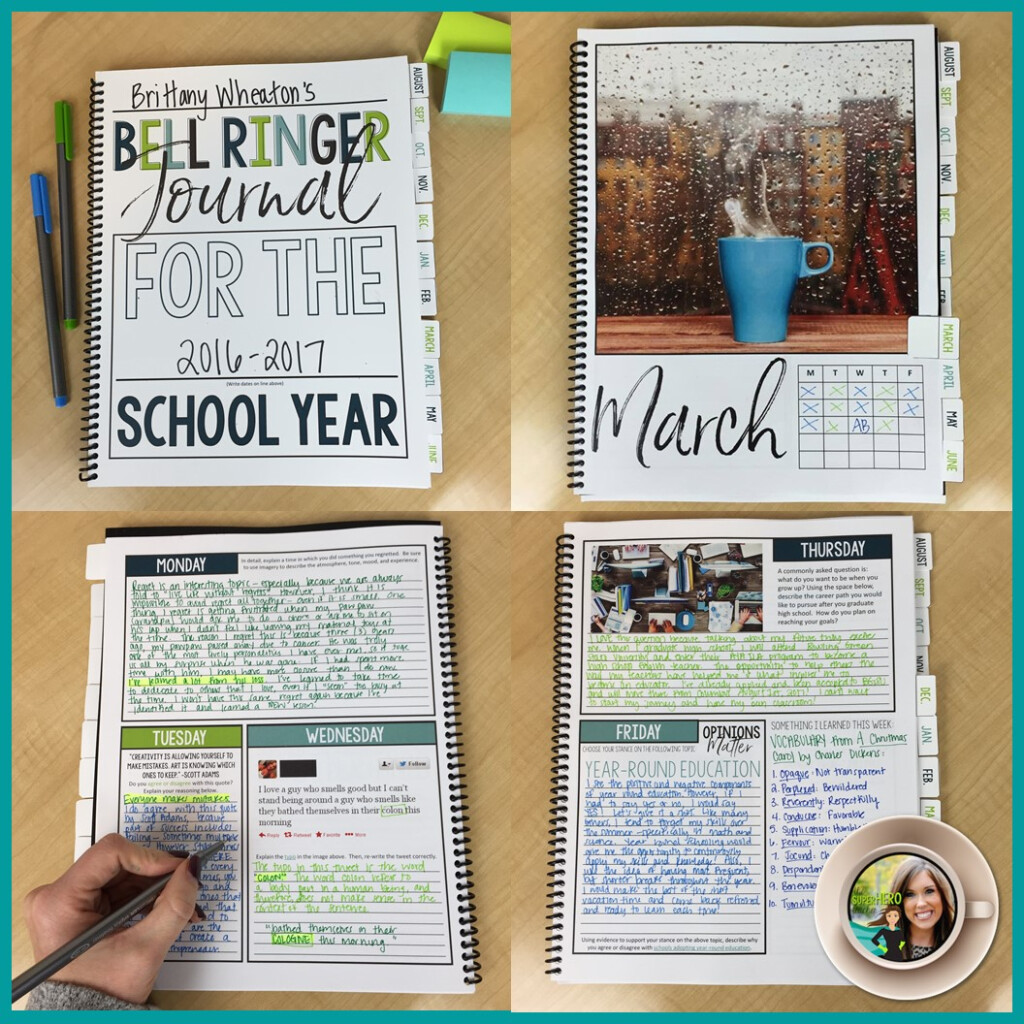 Brittany Wheaton's
BELL RINGER
Journal
FOR THE
2016-2017
(Write dates on line above)
SCHOOL YEAR
AUGUST
SEPT.
OCT.
NOV.
DEC.
JAN.
FEB.
MARCH
APRIL
MAY
JUNE
AUGUST
SEPT.
OCT
NOV.
DEC.
JAN.
MARCH
APRIL
MAY
JUNE
March
M T W T F
X X X X X
X X X X X
X X AB
MONDAY
In detail, explain a time in which you did something you regretted. Be sure
to use imagery to describe the atmosphere, tone, mood, and experience.
Regret is an interesting topic - especially because we are always
told to "live life without regrets." However, I think it is
impossible to avoid regret all together - even if it is small. One
thing I regret is getting frustrated when my pawpaw
(grandpa) would ask me to do a chore or help me to
the time. The reason I regret this is because three (3) years
ago, my pawpaw passed away due to cancer. He was truly
one of the most lively personalities I have ever met, so it took
us all by surprise when he was gone. If I had spent more
time with him, I may have more closure than I do now.
I've learned a lot from this loss. I've learned to take time
to dedicate to others that I love, even if "seem" too busy at
the time. I won't have this same regret again because I've
identified it and learned a new lesson.
TUESDAY
"CREATIVITY IS ALLOWING YOURSELF TO
MAKE MISTAKES. ART IS KNOWING WHICH
ONES TO KEEP." -SCOTT ADAMS
Do you agree or disagree with this quote?
Explain your reasoning below.
Everyone makes mistakes.
I do agree with this quote
by Scott Adams, because
part of success includes
failing - sometimes
However
WEDNESDAY
Follow
I love a guy who smells good but I can't
stand being around a guy who smells like
they bathed themselves in their colon this
morning
Reply Retweet Favorite More
Explain the typo in the image above. Then, re-write the tweet correctly.
The typo in this tweet is the word
"COLON!" The word colon refers to
a body part in a human being, and
therefore, does not make sense in the
context of the sentence.
"bathed themselves in their
COLOGNE this morning."
THURSDAY
A commonly asked question is:
what do you want to be when you
grow up? Using the space below,
describe the career path you would
like to pursue after you graduate
high school. How do you plan on
reaching your goals?
I LOVE this question because talking about my future truly excites
me. When I graduate high school, I will attend Bowling Green
State University and enter their AYA ILA program to become a
high school English teacher. The opportunity to help others the
way my teachers have helped me is what inspires me to
become an educator. I've already applied and been accepted to BGSU!
and will move there
to start my journey and have my own classroom!
FRIDAY
OPINIONS
Matter
CHOOSE YOUR STANCE ON THE FOLLOWING TOPIC:
YEAR-ROUND EDUCATION
I see the positive and negative components
of year round education. However, if I
had to say yes or no, I would say
YES! Let's give it a chance. Like many
teens, I tend to forget my skills over
the summer - specifically of math and
science. Year round schooling would
give me the opportunity to continuously
apply my skills and knowledge. Also, I
like the idea of having more frequent,
but shorter breaks throughout the year.
I would make the best of the short
vacation time and come back refreshed
and ready to learn each time!
Using evidence to support your stance on the above topic, describe why
you agree or disagree with schools adopting year-round education.
SOMETHING I LEARNED THIS WEEK:
VOCABULARY from A Christmas
Carol by Charles Dickens:
1. Opaque - Not transparent
2. Bewildered
3. Reverently: Respectfully
4. Conducive: Favorable
5. Supplication: Humble
6.
7. Jocund:
8.
9.
10.
AUGUST
SEPT.
OCT
NOV.
DEC.
JAN.
FEB.
SUPERHERO